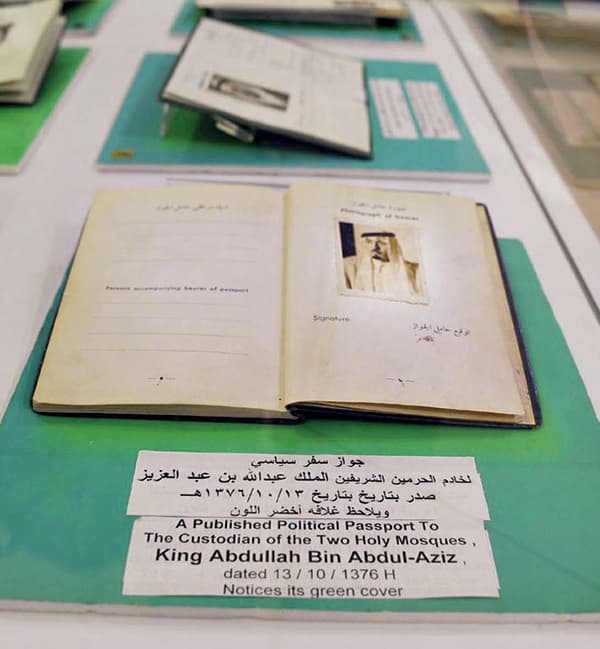 صورة حامل الجواز
Photograph of bearer
Persons accompanying bearer of passport
Signature
توقيع حامل الجواز
جواز سفر سياسي
لخادم الحرمين الشريفين الملك عبدالله بن عبد العزيز
صدر بتاريخ بتاريخ ١٣٧٦/١٠/١٣هـ
ويلاحظ غلافه أخضر اللون
A Published Political Passport To
The Custodian of the Two Holy Mosques ,
King Abdullah Bin Abdul-Aziz ,
dated 13 / 10 / 1376 H
Notices its green cover